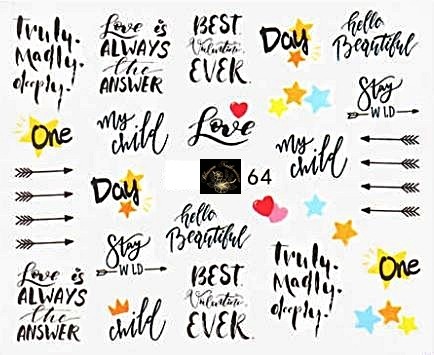 truly.
Madly.
deeply.
Love is
ALWAYS
the
ANSWER
BEST.
Valentine.
EVER.
Day
hello
Beautiful
Stay
WILD
One
my
child
Love
my
child
64
Day
hello
Beautiful
Stay
WILD
truly.
Madly.
deeply.
One
Love is
ALWAYS
the
ANSWER
child
BEST.
Valentine.
EVER.